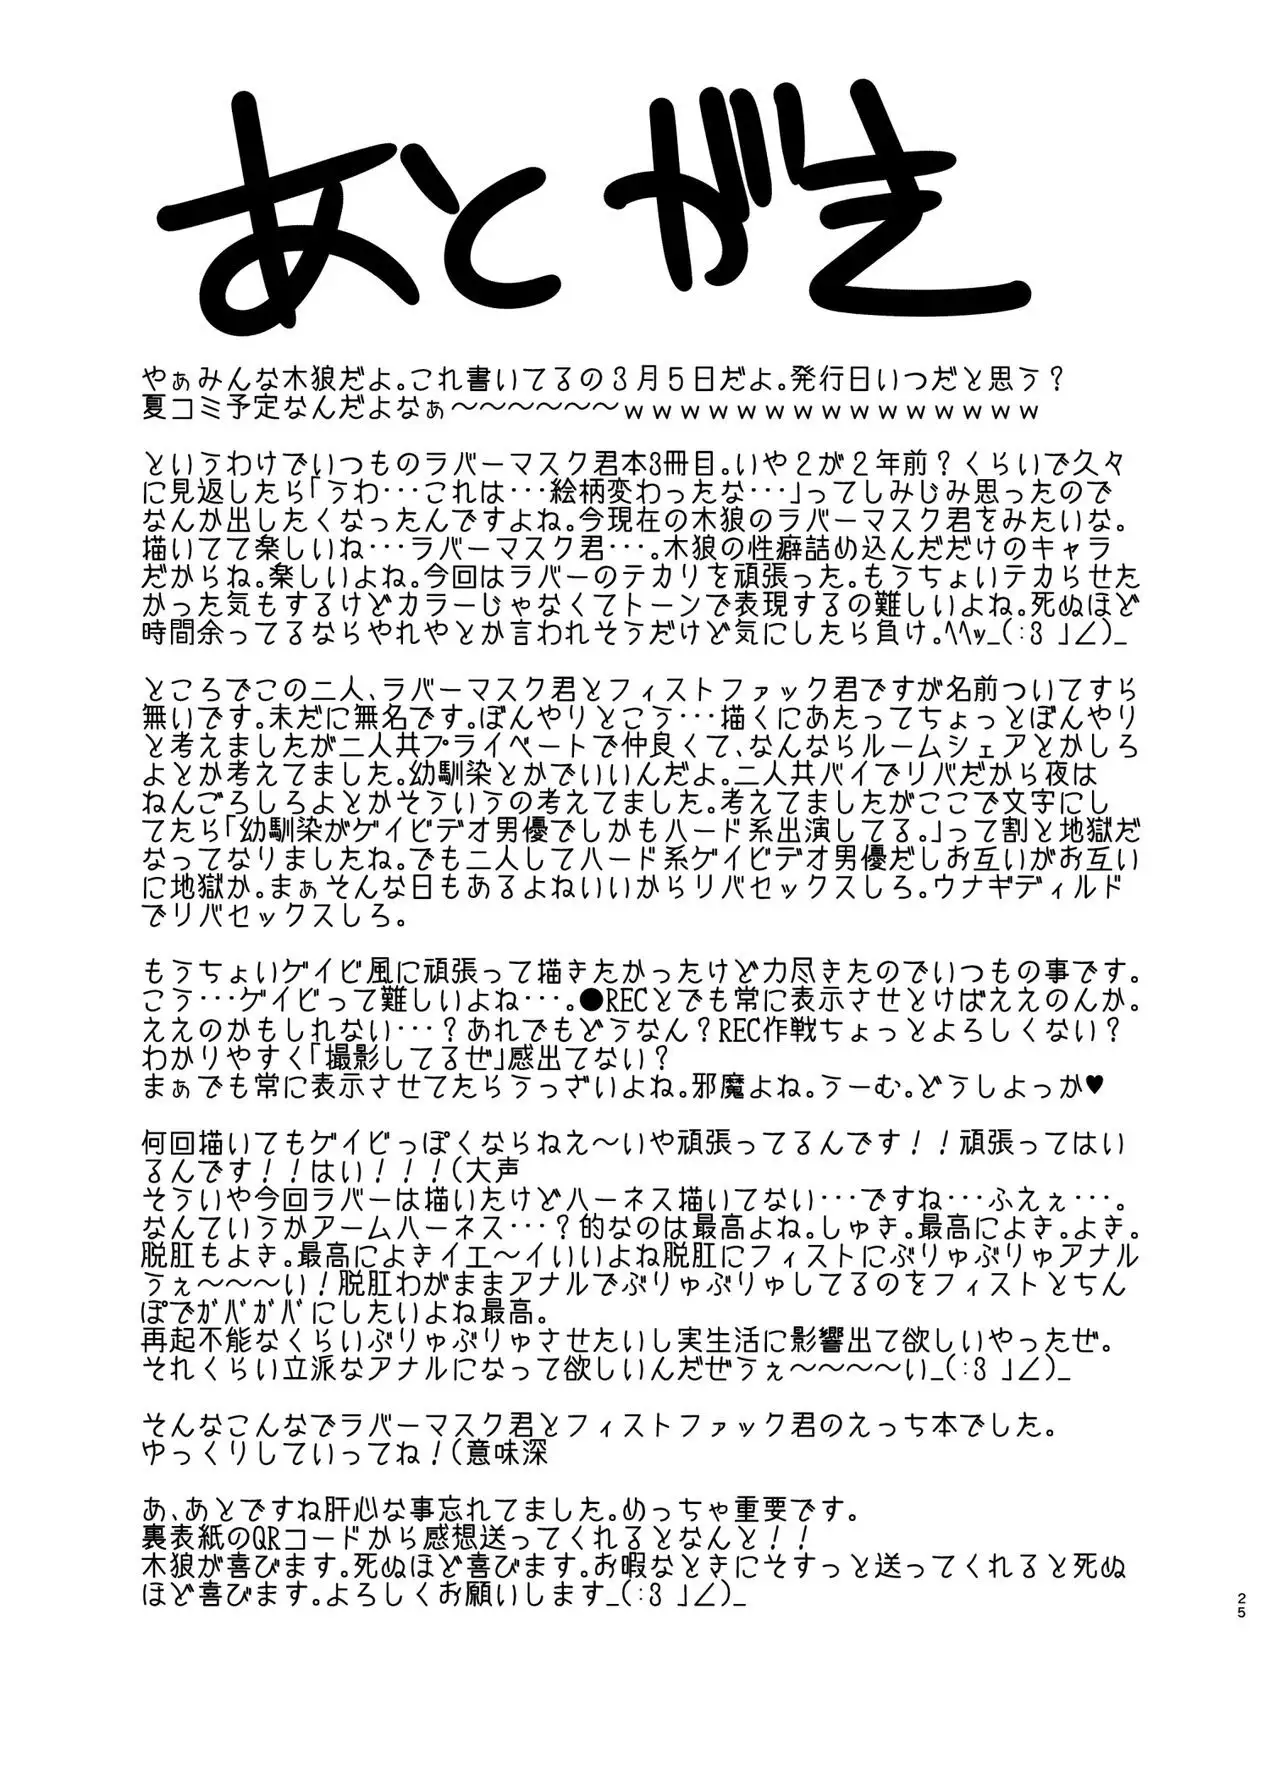 あとがき
やぁみんな木狼だよ。これ書いてるの３月５日だよ。発行日いつだと思う？
夏コミ予定なんだよなぁ～～～～～～ｗｗｗｗｗｗｗｗｗｗｗｗｗｗｗ
というわけでいつものラバーマスク君本3冊目。いや２が２年前？くらいで久々
に見返したら「うわ･･･これは･･･絵柄変わったな･･･」ってしみじみ思ったので
なんか出したくなったんですよね。今現在の木狼のラバーマスク君をみたいな。
描いてて楽しいね･･･ラバーマスク君･･･。木狼の性癖詰め込んだだけのキャラ
だからね。楽しいよね。今回はラバーのテカリを頑張った。もうちょいテカらせた
かった気もするけどカラーじゃなくてトーンで表現するの難しいよね。死ぬほど
時間余ってるならやれやとか言われそうだけど気にしたら負け。ﾍﾍｯ_(:3 」∠)_
ところでこの二人、ラバーマスク君とフィストファック君ですが名前ついてすら
無いです。未だに無名です。ぼんやりとこう･･･描くにあたってちょっとぼんやり
と考えましたが二人共プライベートで仲良くて、なんならルームシェアとかしろ
よとか考えてました。幼馴染とかでいいんだよ。二人共バイでリバだから夜は
ねんごろしろよとかそういうの考えてました。考えてましたがここで文字にし
てたら「幼馴染がゲイビデオ男優でしかもハード系出演してる。」って割と地獄だ
なってなりましたね。でも二人してハード系ゲイビデオ男優だしお互いがお互い
に地獄か。まぁそんな日もあるよねいいからリバセックスしろ。ウナギディルド
でリバセックスしろ。
もうちょいゲイビ風に頑張って描きたかったけど力尽きたのでいつもの事です。
こう･･･ゲイビって難しいよね･･･。●RECとでも常に表示させとけばええのんか。
ええのかもしれない･･･？あれでもどうなん？REC作戦ちょっとよろしくない？
わかりやすく「撮影してるぜ」感出てない？
まぁでも常に表示させてたらうっざいよね。邪魔よね。うーむ。どうしよっか♥
何回描いてもゲイビっぽくならねえ～いや頑張ってるんです！！頑張ってはい
るんです！！はい！！！（大声
そういや今回ラバーは描いたけどハーネス描いてない･･･ですね･･･ふえぇ･･･。
なんていうかアームハーネス･･･？的なのは最高よね。しゅき。最高によき。よき。
脱肛もよき。最高によきイエ～イいいよね脱肛にフィストにぶりゅぶりゅアナル
うぇ～～～い！脱肛わがままアナルでぶりゅぶりゅしてるのをフィストとちん
ぽでｶﾞﾊﾞｶﾞﾊﾞにしたいよね最高。
再起不能なくらいぶりゅぶりゅさせたいし実生活に影響出て欲しいやったぜ。
それくらい立派なアナルになって欲しいんだぜうぇ～～～～い_(:3 」∠)_
そんなこんなでラバーマスク君とフィストファック君のえっち本でした。
ゆっくりしていってね！（意味深
あ、あとですね肝心な事忘れてました。めっちゃ重要です。
裏表紙のQRコードから感想送ってくれるとなんと！！
木狼が喜びます。死ぬほど喜びます。お暇なときにそすっと送ってくれると死ぬ
ほど喜びます。よろしくお願いします_(:3 」∠)_
25